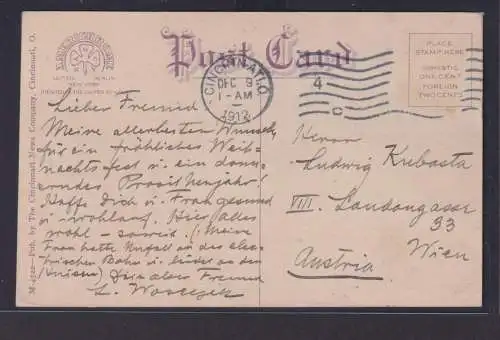 Post Card
CINCINNATI, O.
DEC 9
1-AM
1912
4
C
PLACE
STAMP HERE
DOMESTIC
ONE CENT
FOREIGN
TWO CENTS
LEIPZIG BERLIN
NEW YORK
M-4320—Pub. by The Cincinnati News Company, Cincinnati, O.
Lieber Freund
Meine allerbesten Wünsche
für ein fröhliches Weih-
nachtsfest u. ein donn-
erndes Prosit Neujahr!
Hoffe Dich u. Frau gesund
u. wohlauf. Hier alles
wohl – soweit. (Meine
Frau hatte Unfall auf der elec-
trischen Bahn u. leidet an den
Knieen) Dein alter Freund
L.
Herrn
Ludwig Kubasta
VIII Laudongasse
33
Wien
Austria